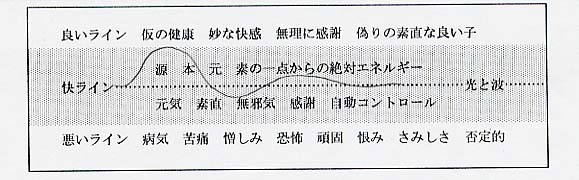 良いライン 仮の健康 妙な快感 無理に感謝 偽りの素直な良い子
源 本 元 素の一点からの絶対エネルギー
快ライン 光と波
元気 素直 無邪気 感謝 自動コントロール
悪いライン 病気 苦痛 憎しみ 恐怖 頑固 恨み さみしさ 否定的